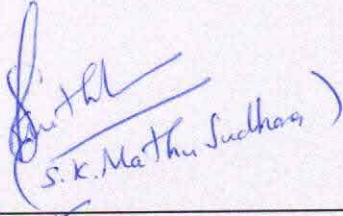 (S.K. Mathu Sudhan)